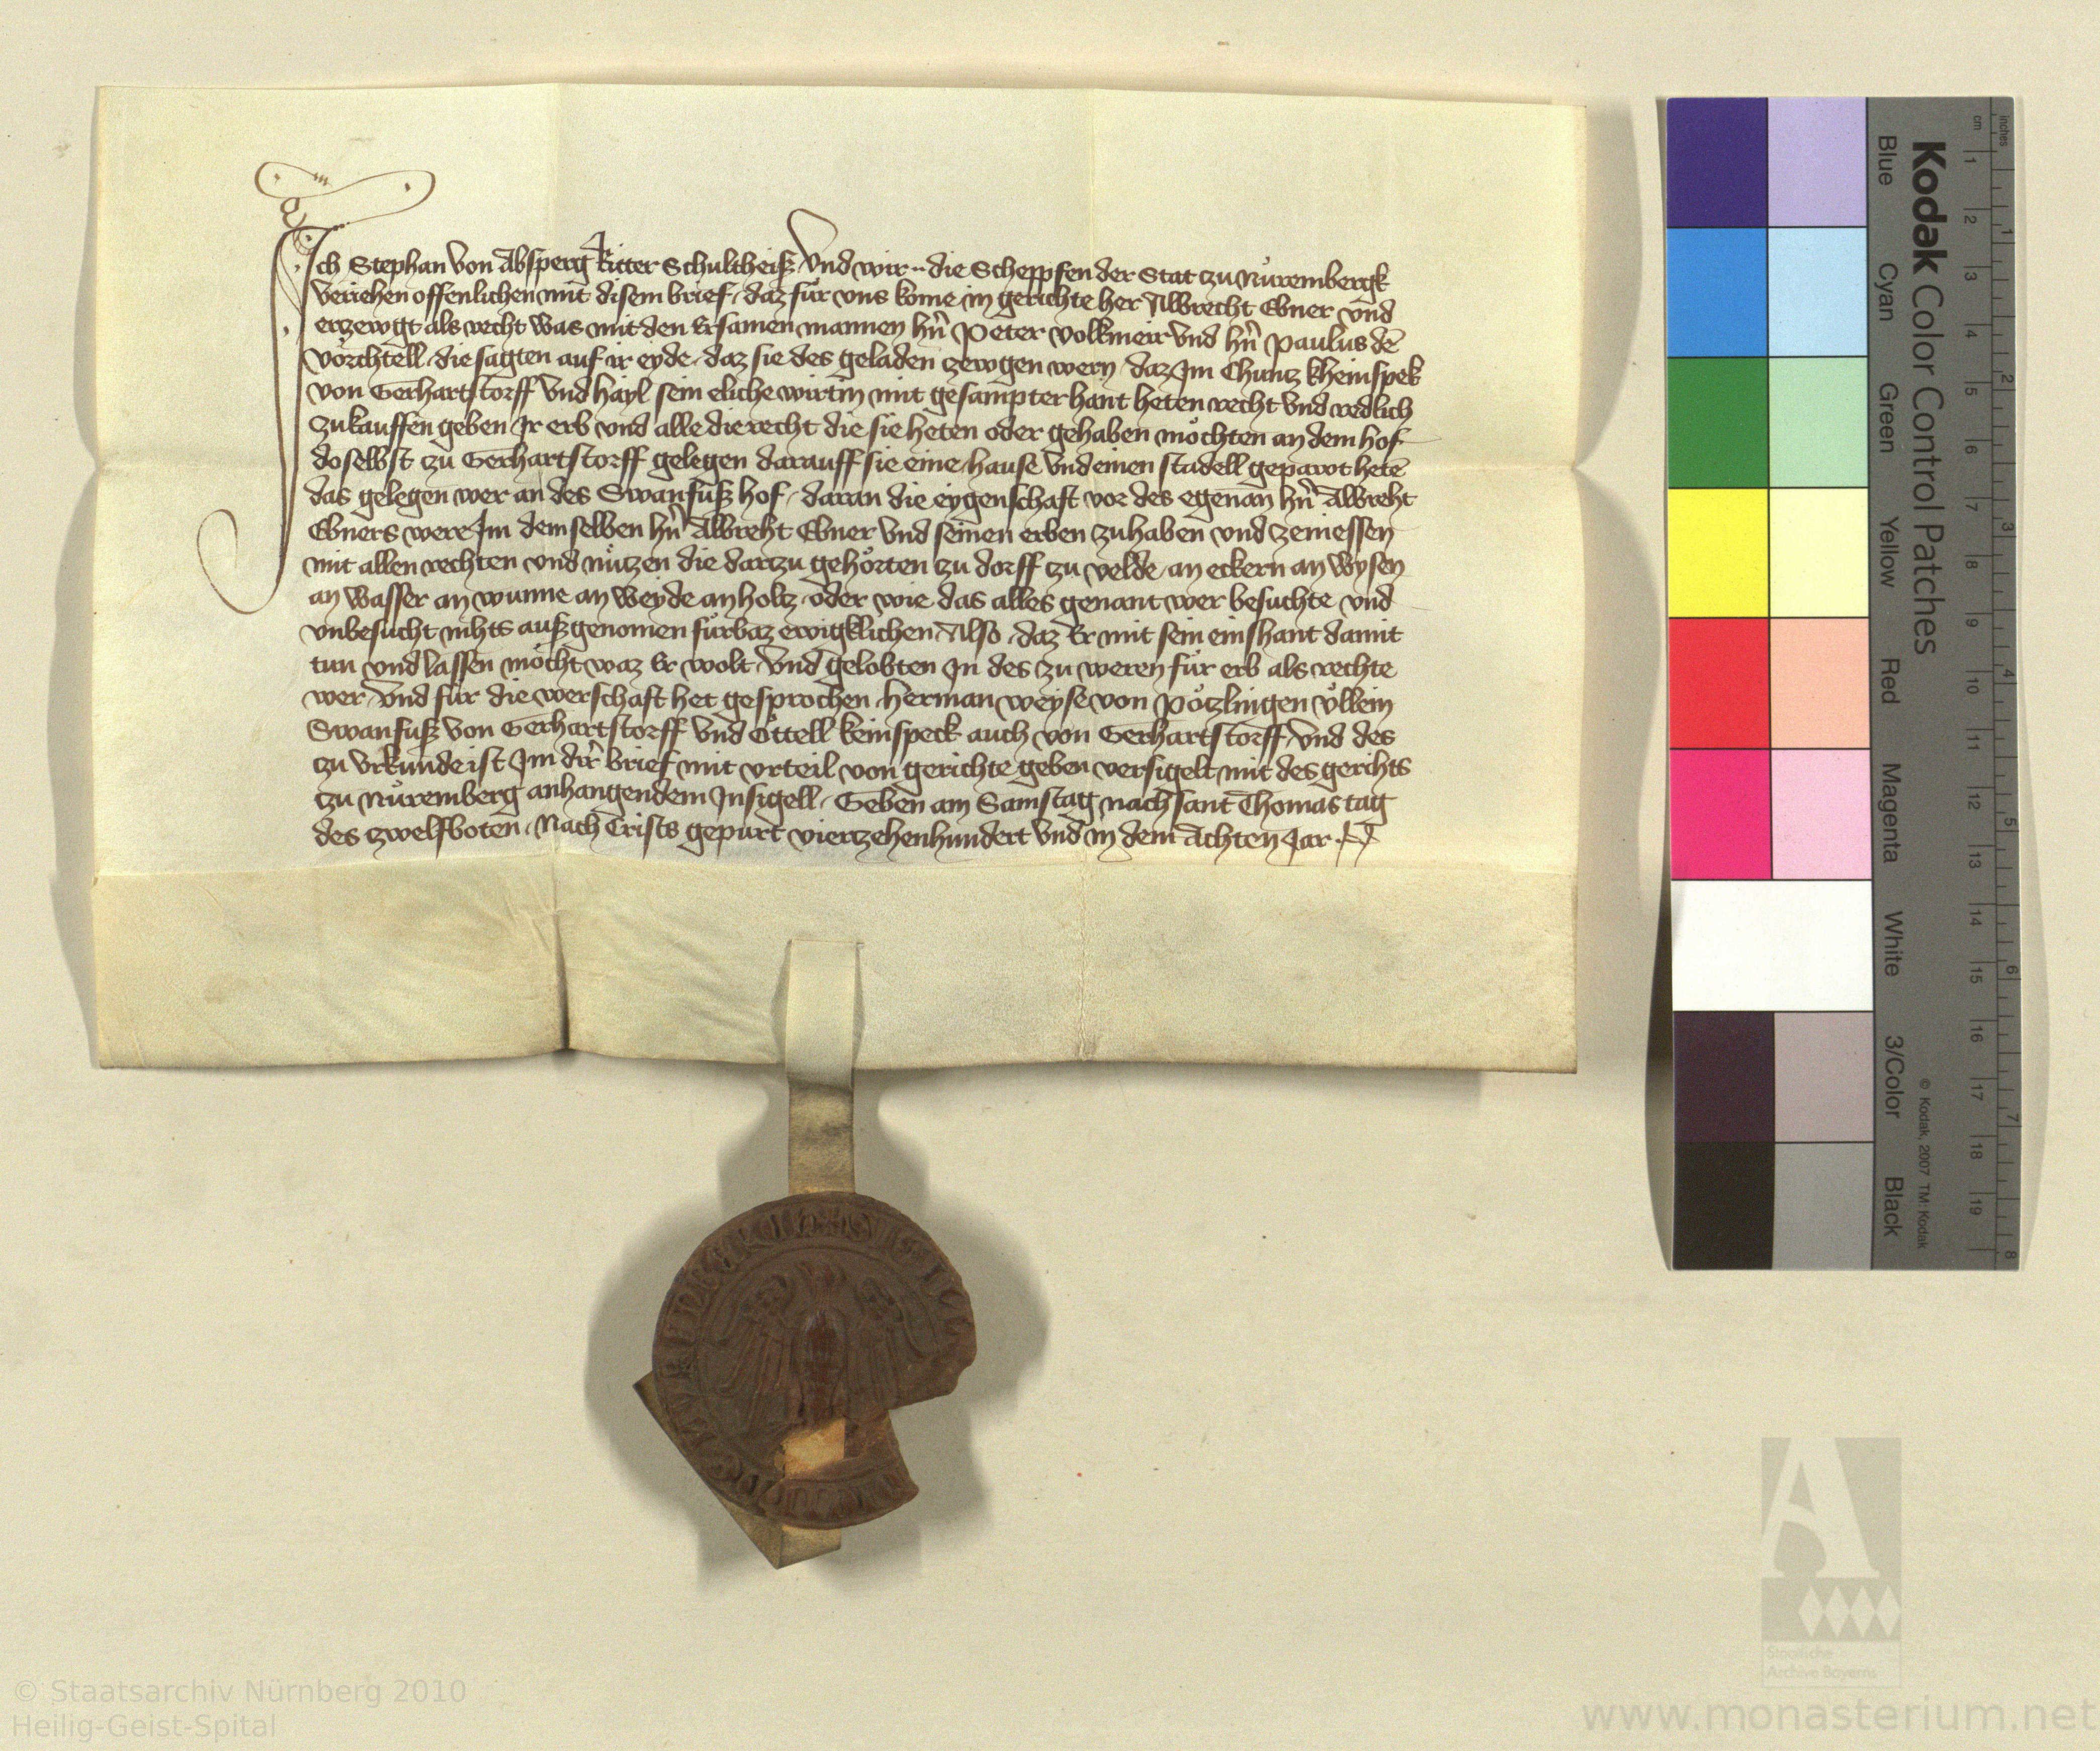 Ich Stephan von Absperg Ritter Schultheiß Vnd wir ·· die Scheppfen der Stat zu Nůrembergk
veriehen offenlichen mit disem brief / daz fůr vns kome in gerichte her Albrecht Ebner vnd
erzewgt als recht was mit den Ersamen mannen hn̄ Peter Volkmeir vnd hn̄ Paulus dē
Vörchtell / die sagten auf ir eyde / daz sie des geladen zewgen wern / daz Im Chuntz kheinspek
von Gerhartstorff vnd hayl sein eliche wirtin mit gesampter hant heten recht vnd redlich
zukauffen geben Ir erb vnd alle die recht die sie heten oder gehaben möchten an dem hof
doselbst zu Gerhartstorff gelegen darauff sie eine hause vnd einen stadell gepawt hetē
das gelegen wer an des Swanfuß hof / daran die eygenschaft vor des egenan hn̄ Albreht
Ebners were Im dem selben hn̄ Albreht Ebner vnd seinen erben zuhaben vnd zeniessen
mit allen rechten vnd nůtzen die dartzu gehörten zu dorff zu velde / an eckern an wysen
an wasser an wunne an weyde an holtz oder wie das alles genant wer besuchte vnd
vnbesucht nihts außgenomen fůrbaz ewigklichen Also / daz Er mit sein eins hant damit
tun vnd lassen möcht waz Er wolt Vnd gelobten In des zu weren fůr erb als rechte
wer / Vnd fůr die werschaft het gesprochen Herman weyse von Pötzlingen Vllein
Swanfuß von Gerhartstorff vnd Ottell keinspeck auch von Gerhartstorff / Vnd des
zu Vrkunde ist Im dir̄ brief mit vrteil von gerichte geben versigelt mit des gerichts
zu Nůremberg anhangendem Insigell / Geben am Samstag nach sant Thomas tag
des zwelfboten / Nach Crists gepurt viertzehenhundert vnd in dem Achten Jar
Kodak Color Control Patches
Blue Cyan Green Yellow Red Magenta White 3/Color Black
© Kodak, 2007 TM: Kodak
cm 1 2 3 4 5 6 7 8 9 10 11 12 13 14 15 16 17 18 19
inches 1 2 3 4 5 6 7 8
Staatliche
Archive Bayerns
© Staatsarchiv Nürnberg 2010
Heilig-Geist-Spital
www.monasterium.net